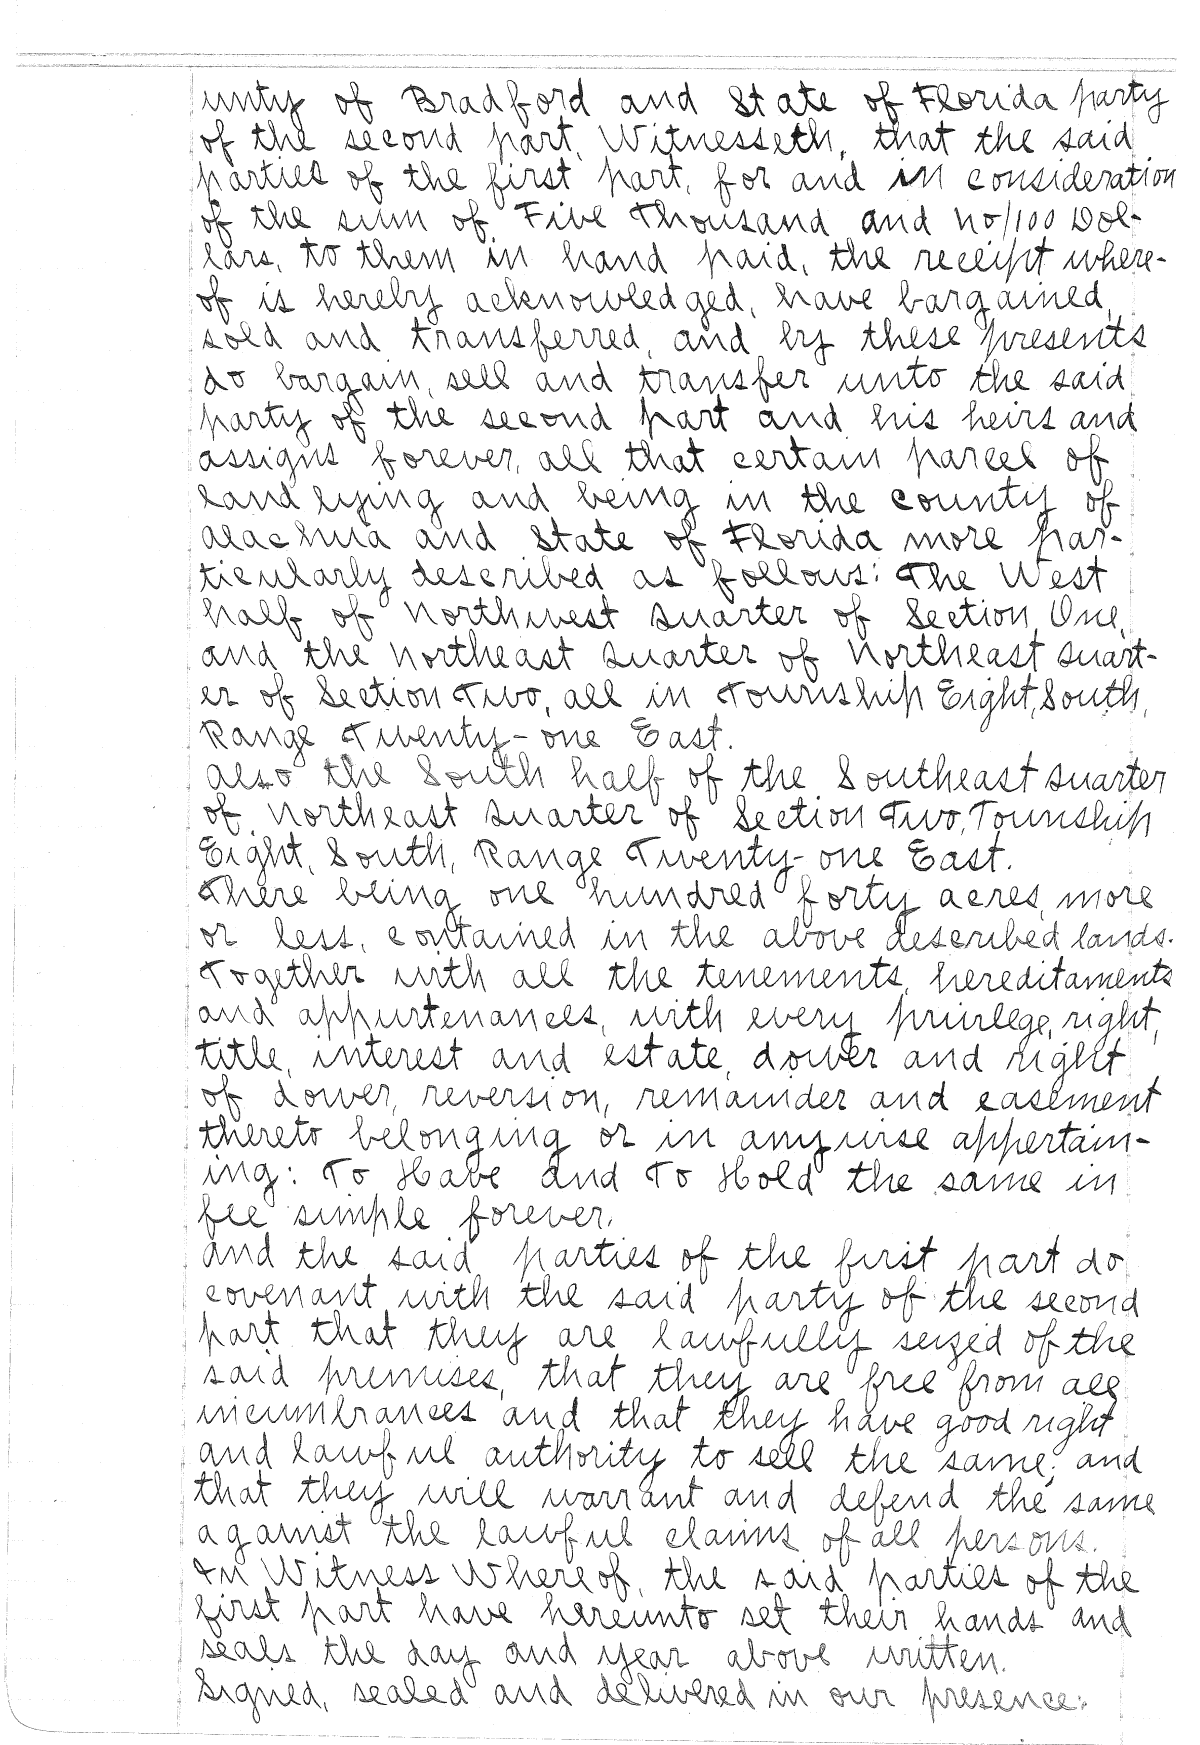 unty of Bradford and State of Florida party
of the second part, Witnesseth, that the said
parties of the first part, for and in consideration
of the sum of Five Thousand and no/100 Dol-
lars, to them in hand paid, the receipt where-
of is hereby acknowledged, have bargained,
sold and transferred, and by these presents
do bargain, sell and transfer unto the said
party of the second part and his heirs and
assigns forever, all that certain parcel of
land lying and being in the county of
Alachua and State of Florida more par-
ticularly described as follows: The West
half of Northwest Quarter of Section One,
and the Northeast Quarter of Northeast Quart-
er of Section Two, all in Township Eight, South,
Range Twenty-one East.
Also the South half of the Southeast Quarter
of Northeast Quarter of Section Two, Township
Eight, South, Range Twenty-one East.
There being one hundred forty acres, more
or less, contained in the above described lands.
Together with all the tenements, hereditaments
and appurtenances, with every privilege, right,
title, interest and estate, dower and right
of dower, reversion, remainder and easement
thereto belonging or in anywise appertain-
ing: To Have and To Hold the same in
fee simple forever.
And the said parties of the first part do
covenant with the said party of the second
part that they are lawfully seized of the
said premises, that they are free from all
incumbrances and that they have good right
and lawful authority to sell the same; and
that they will warrant and defend the same
against the lawful claims of all persons.
In Witness Whereof, the said parties of the
first part have hereunto set their hands and
seals the day and year above written.
Signed, sealed and delivered in our presence: